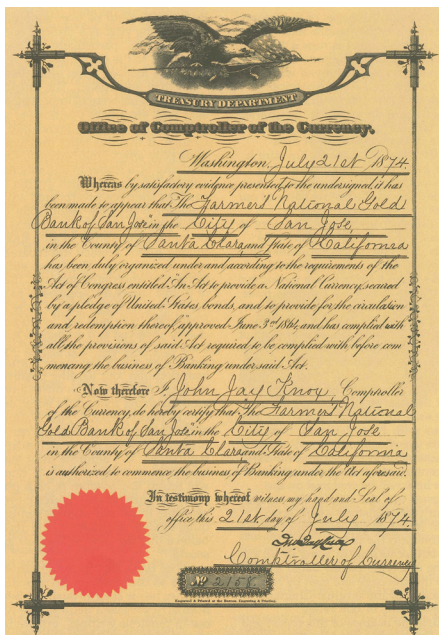 TREASURY DEPARTMENT
Office of Comptroller of the Currency.
Washington, July 21st 1874.
Whereas by satisfactory evidence presented to the undersigned, it has
been made to appear that The Farmers National Gold
Bank of San Jose in the City of San Jose,
in the County of Santa Clara and State of California
has been duly organized under and according to the requirements of the
Act of Congress entitled An Act to provide a National Currency, secured
by a pledge of United States bonds, and to provide for the circulation
and redemption thereof, approved June 3rd 1864, and has complied with
all the provisions of said Act required to be complied with before com
mencing the business of Banking under said Act.
Now therefore I, John Jay Knox, Comptroller
of the Currency, do hereby certify that The Farmers National
Gold Bank of San Jose in the City of San Jose
in the County of Santa Clara and State of California
is authorized to commence the business of Banking under the Act aforesaid.
In testimony whereof witness my hand and Seal of
office, this 21st day of July 1874.
Jno Jay Knox
Comptroller of Currency
No 2158.